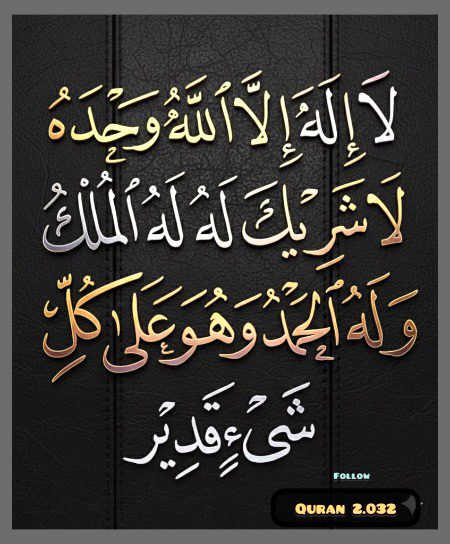 لَا إِلَهَ إِلَّا ٱللَّهُ وَحْدَهُ
لَا شَرِيْكَ لَهُ لَهُ ٱلْمُلْكُ
وَلَهُ ٱلْحَمْدُ وَهُوَ عَلَى كُلِّ
شَىْءٍ قَدِيْر
Follow
Quran 2.032